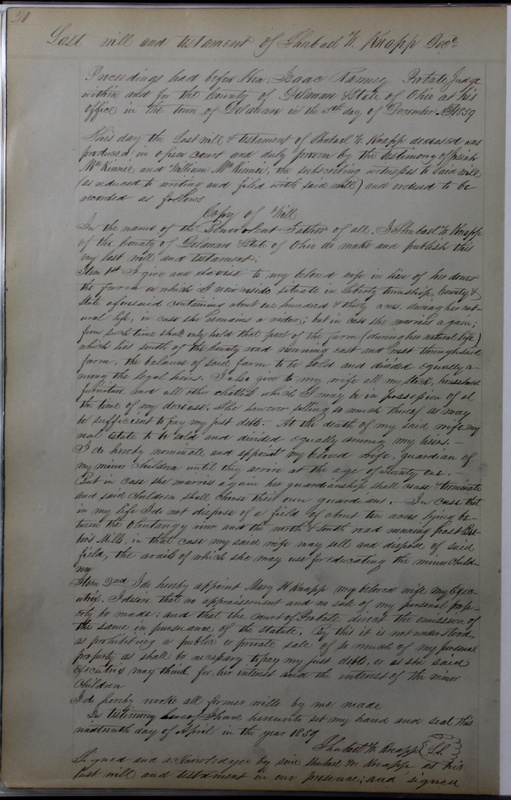 21
Last will and testament of Shubael W. Knapp Decd.
Proceedings had before Hon. Isaac Ranney Probate Judge
within and for the County of Delaware State of Ohio at his
office in the town of Delaware on the day of December AD 1859
This day the Last will & testament of Shubael W. Knapp deceased was
produced in open court and duly proven by the testimony of Josiah
McKinnie and William McKinnie, the subscribing witnesses to said will
(as reduced to writing and filed with said will) and ordered to be
recorded as follows
Copy of Will
In the name of the Benevolent Father of all. I Shubael W. Knapp
of the County of Delaware State of Ohio do make and publish this
my last will and testament.
Item 1st I give and devise to my beloved wife in lieu of her dower
the farm on which I now reside situate in Liberty township, County &
State aforesaid containing about one hundred & thirty acres during her nat-
ural life, in case she remains a widow; but in case she marries again;
from such time shall only hold that part of the farm (during her natural life)
which lies south of the County road running east and west through said
farm, the balance of said farm to be sold and divided equally a-
mong the legal heirs. I also give to my wife all my stock, household
furniture and all other chattels which I may be in possession of at
the time of my decease. She however selling so much thereof as may
be sufficient to pay my just debts. At the death of my said wife my
real estate to be sold and divided equally among my heirs. -
I do hereby nominate and appoint my beloved wife, guardian of
my minor Children until they arrive at the age of twenty one. -
But in case she marries again her guardianship shall cease & terminate
and said children shall chose their own guardians. - In case that
in my life I do not dispose of a field of about ten acres lying be-
tween the Olentangy river and the north & south road running past Bel-
ts Mills, in that case my said wife may sell and dispose of said
field, the avails of which she may use for educating the minor Child-
ren
Item 2nd I do hereby appoint Mary H Knapp my beloved wife my Exec-
utrix. I desire that no appraisement and no sale of my personal prop-
erty be made; and that the Court of Probate direct the omission of
the same in pursuance of the statute. By this it is not understood
as prohibiting a public or private sale of so much of my personal
property as shall be necessary to pay my just debts, or as she said
Executrix may think for her interest and the interest of the minor
Children
I do hereby revoke all former wills by me made
In testimony hereof I have hereunto set my hand and seal, this
nineteenth day of April in the year 1859
Shubael W. Knapp
Signed and acknowledged by said Shubael W. Knapp as his
last will and testament in our presence; and signed